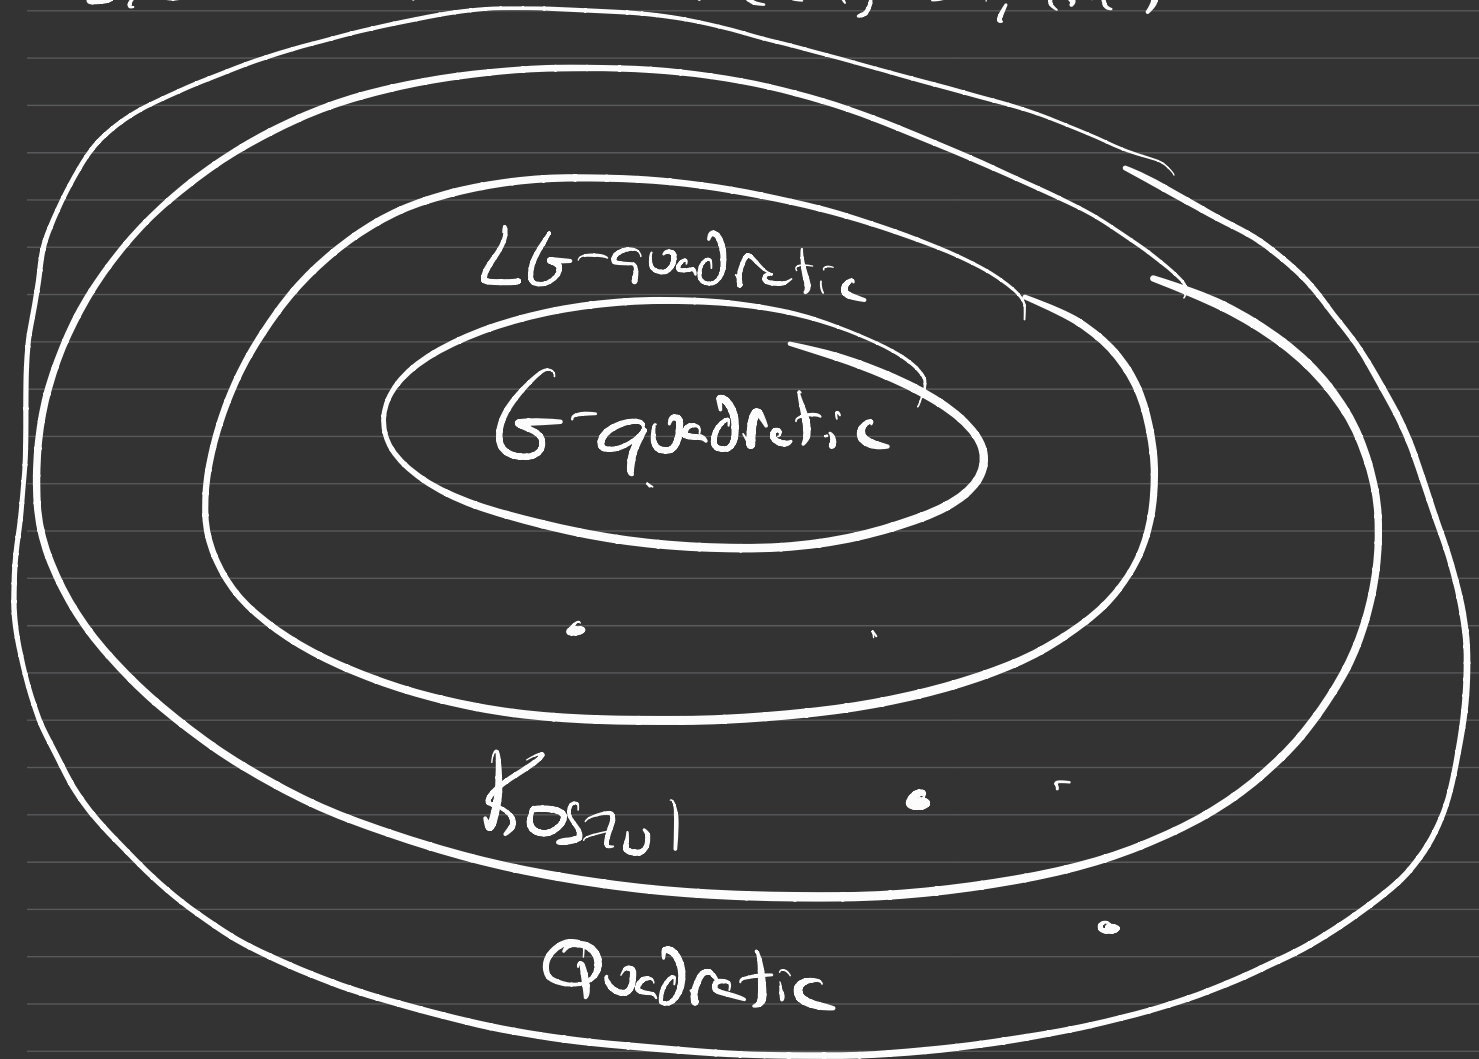 LG-quadratic
G-quadratic
Koszul
Quadratic